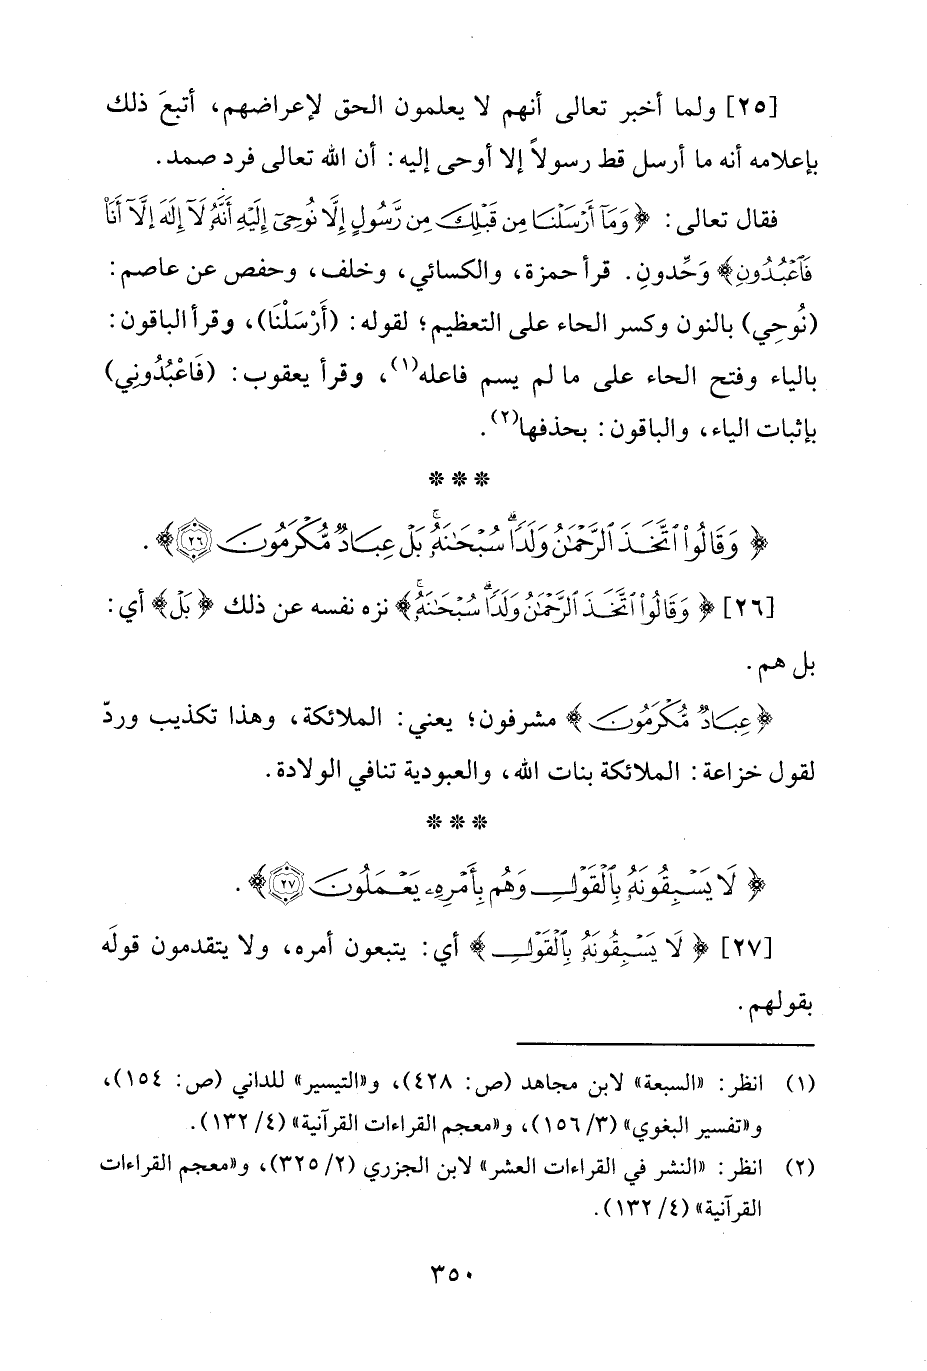 [٢٥] ولما أخبر تعالى أنهم لا يعلمون الحق لإعراضهم، أتبعَ ذلك
بإعلامه أنه ما أرسل قط رسولاً إلا أوحى إليه: أن الله تعالى فرد صمد.
فقال تعالى: ﴿وَمَآ أَرْسَلْنَا مِن قَبْلِكَ مِن رَّسُولٍ إِلَّا نُوحِىٓ إِلَيْهِ أَنَّهُۥ لَآ إِلَٰهَ إِلَّآ أَنَا۠
فَٱعْبُدُونِ﴾ وَحِّدونِ. قرأ حمزة، والكسائي، وخلف، وحفص عن عاصم:
(نُوحِي) بالنون وكسر الحاء على التعظيم؛ لقوله: (أَرْسَلْنَا)، وقرأ الباقون:
بالياء وفتح الحاء على ما لم يسم فاعله(١)، وقرأ يعقوب: (فَاعْبُدُونِي)
بإثبات الياء، والباقون: بحذفها(٢).
* * *
﴿وَقَالُوا۟ ٱتَّخَذَ ٱلرَّحْمَٰنُ وَلَدًۭا ۗ سُبْحَٰنَهُۥ ۚ بَلْ عِبَادٌۭ مُّكْرَمُونَ ٢٦﴾.
[٢٦] ﴿وَقَالُوا۟ ٱتَّخَذَ ٱلرَّحْمَٰنُ وَلَدًۭا ۗ سُبْحَٰنَهُۥ ۚ﴾ نزه نفسه عن ذلك ﴿بَلْ﴾ أي:
بل هم.
﴿عِبَادٌۭ مُّكْرَمُونَ﴾ مشرفون؛ يعني: الملائكة، وهذا تكذيب وردّ
لقول خزاعة: الملائكة بنات الله، والعبودية تنافي الولادة.
* * *
﴿لَا يَسْبِقُونَهُۥ بِٱلْقَوْلِ وَهُم بِأَمْرِهِۦ يَعْمَلُونَ ٢٧﴾.
[٢٧] ﴿لَا يَسْبِقُونَهُۥ بِٱلْقَوْلِ﴾ أي: يتبعون أمره، ولا يتقدمون قولَه
بقولهم.
(١) انظر: «السبعة» لابن مجاهد (ص: ٤٢٨)، و«التيسير» للداني (ص: ١٥٤)،
و«تفسير البغوي» (٣/ ١٥٦)، و«معجم القراءات القرآنية» (٤/ ١٣٢).
(٢) انظر: «النشر في القراءات العشر» لابن الجزري (٢/ ٣٢٥)، و«معجم القراءات
القرآنية» (٤/ ١٣٢).
٣٥٠